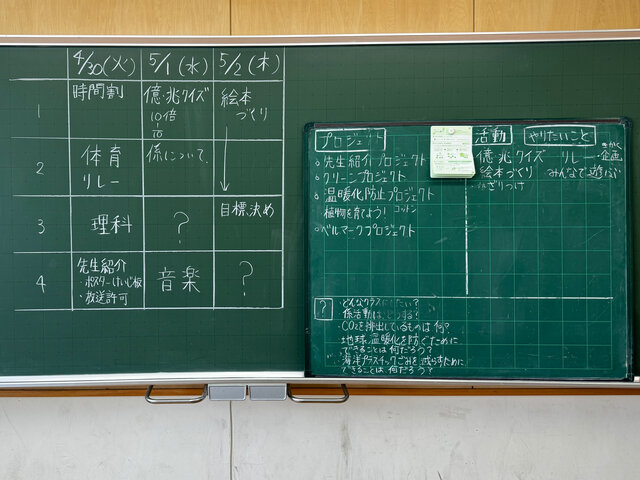 4/30(火) 5/1(水) 5/2(木)
1 時間割 億・兆クイズ 絵本
10倍 づくり
1/10
2 体育 係について
リレー
3 理科 ? 目標決め
4 先生紹介 音楽 ?
・ポスターけいじ板
・放送許可
プロジェクト
○先生紹介プロジェクト
○クリーンプロジェクト
○温暖化防止プロジェクト
植物を育てよう! コットン
○ベルマークプロジェクト
活動 やりたいこと
・企画
億・兆クイズ リレー
絵本づくり みんなで遊ぶ
ざりつけ
?
・どんなクラスにしたい?
・係活動は、どうする?
・CO2を排出しているものは何?
・地球温暖化を防ぐために
できることは何だろう?
・海洋プラスチックごみを減らすために
できることは何だろう?